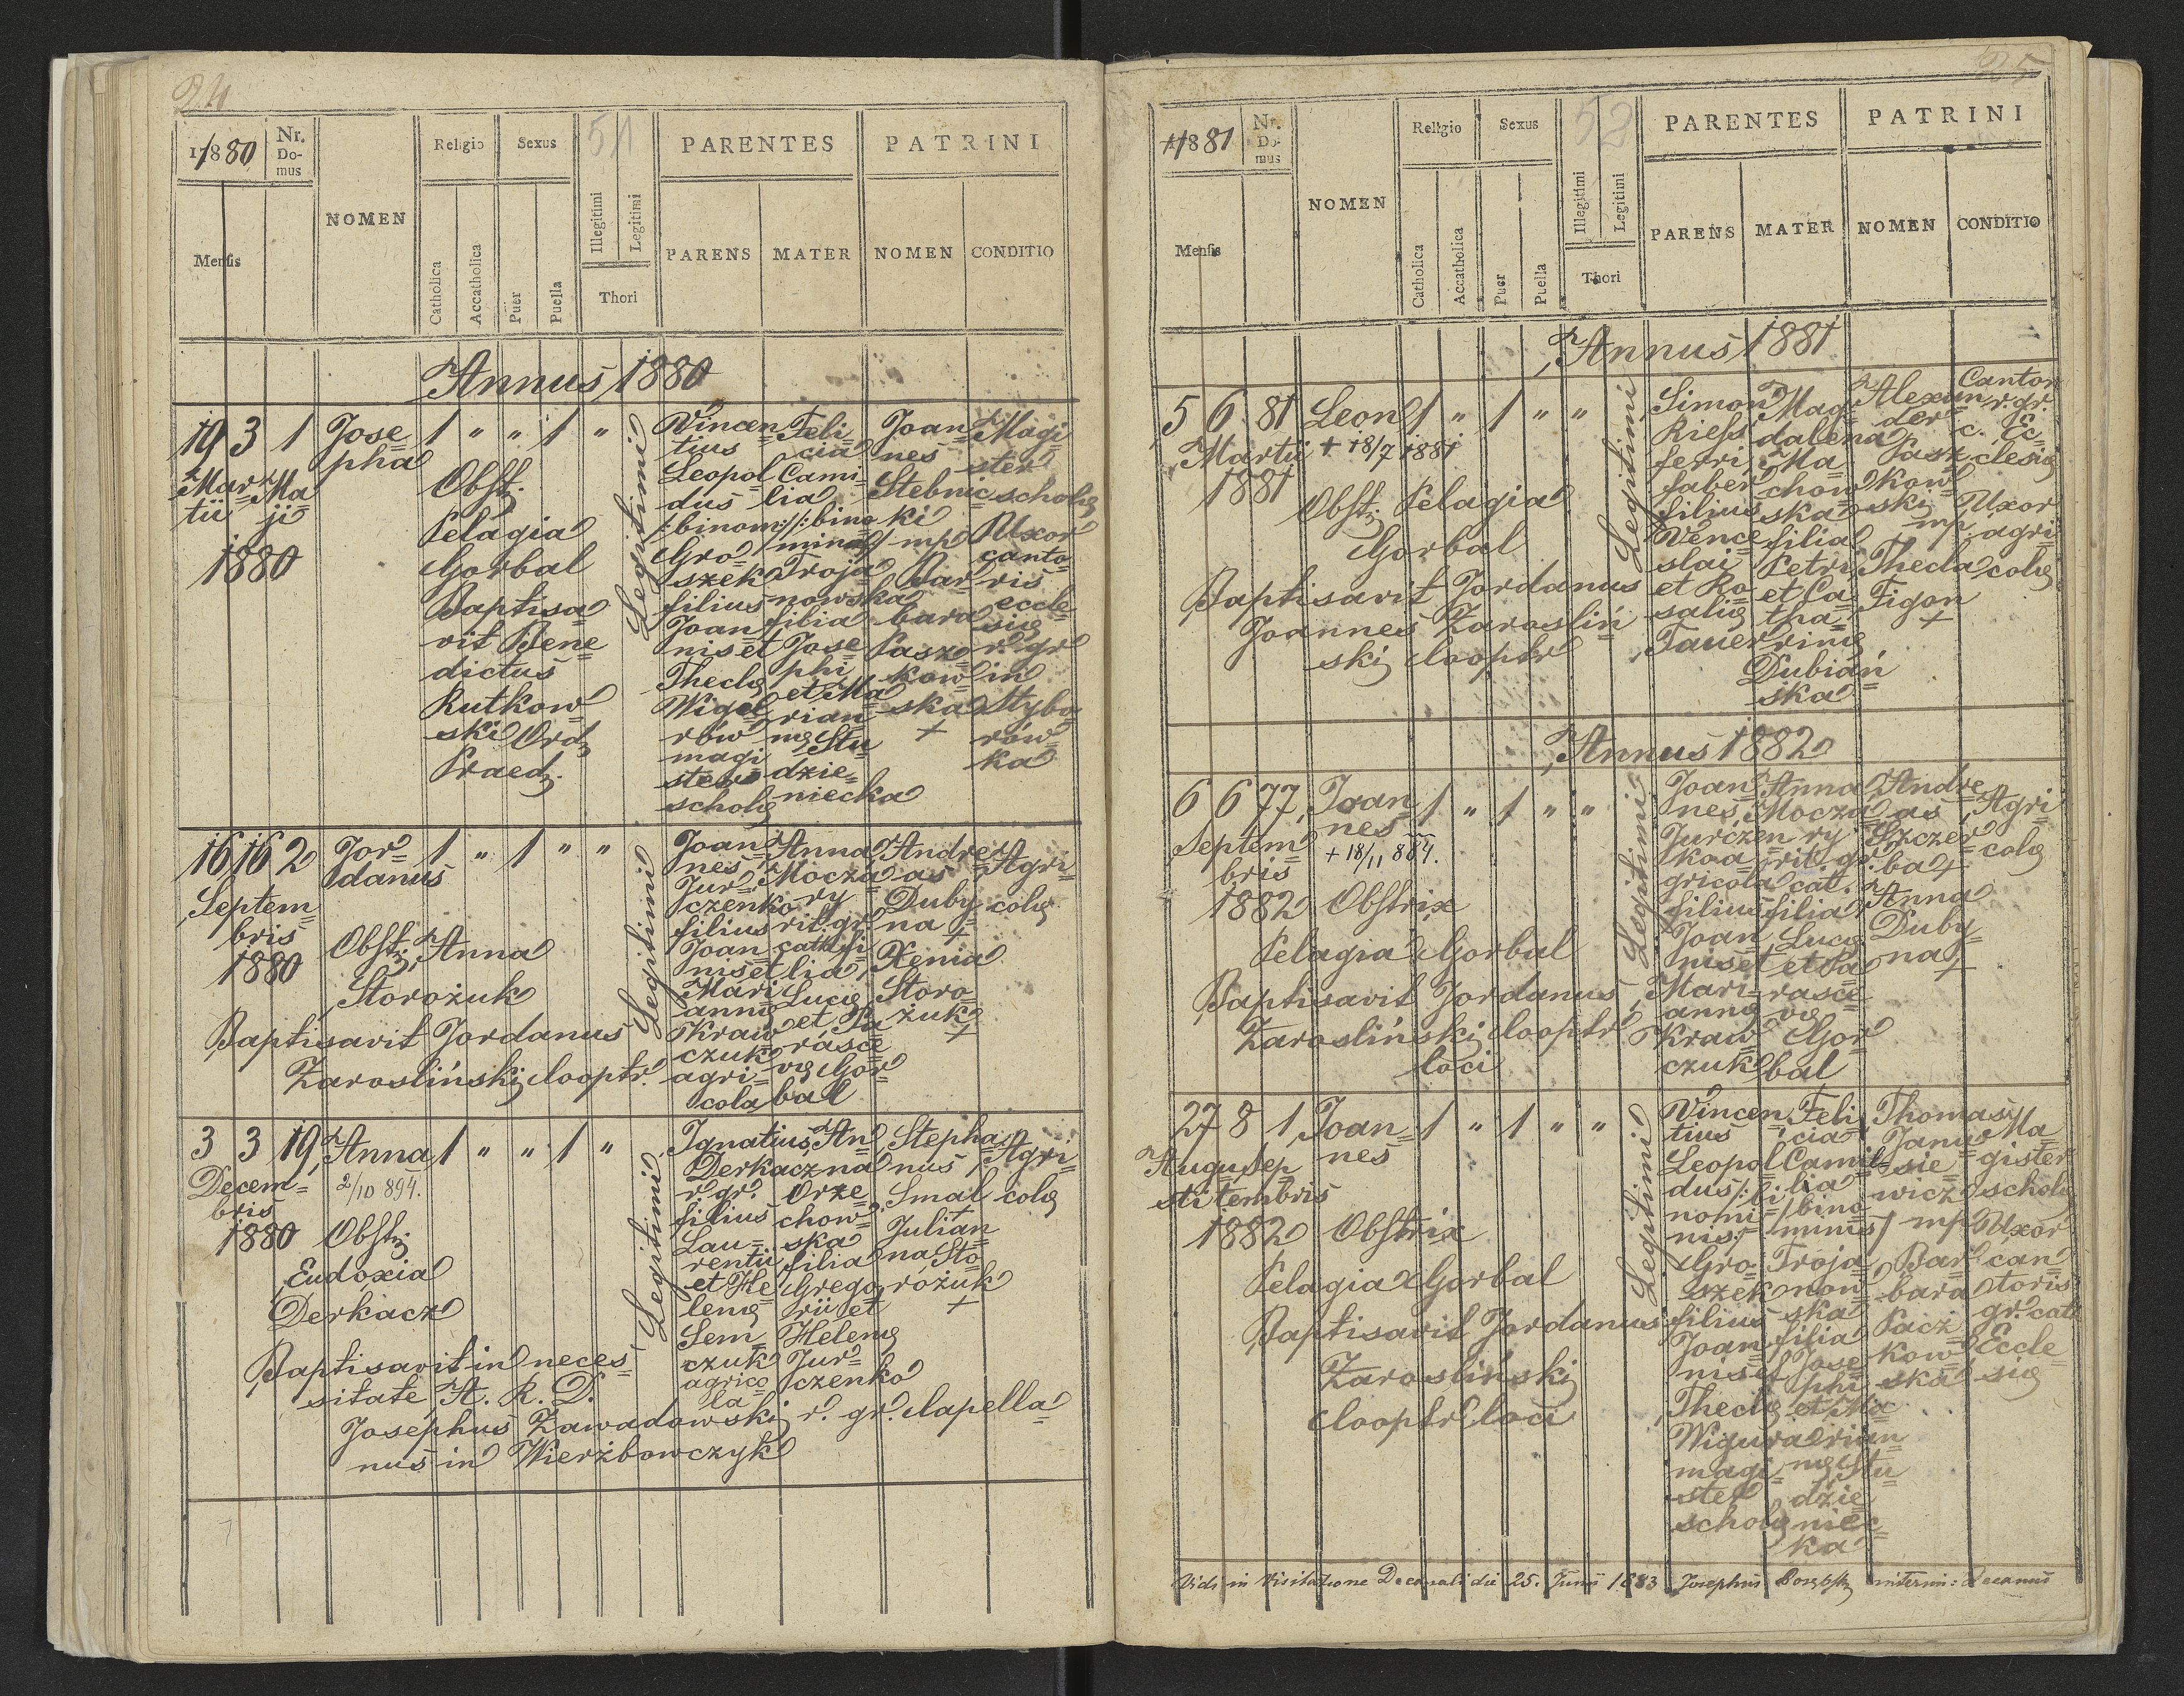 24
51
1880
Nr. Do-mus
Mensis
NOMEN
Religio
Catholica
Accatholica
Sexus
Puer
Puella
Illegitimi
Legitimi
Thori
PARENTES
PARENS
MATER
PATRINI
NOMEN
CONDITIO
Annus 1880
19 3 1 Jose= 1 " " 1 "
pha
Mar= Ma=
tii ji
1880
Obst.
Pelagia
Gorbal
Baptisa=
vit Bene=
dictus
Rutkow=
ski Ord.
Praed.
Legitimi
Vincen=
tius
Leopol=
dus
/:binom:/
Gro=
szek
filius
Joan=
nis et
Theclę
Wigo=
rów
magi=
ster
scholę
Feli=
cia
Cami=
lia
/:bino=
minis/
Troja=
nowska
filia
Jose=
phi
et Ma=
rian=
nę Stu=
dzie=
niecka
Joan=
nes
Stebnic=
ki
mp
Bar=
bara
Pasz=
kow=
ska
+
Magi=
ster
scholę
Uxor
canto=
ris
eccle=
się
r. gr.
in
Stybo=
rów=
ka
16 16 2 Jor= 1 " 1 " "
danus
Septem=
bris
1880
Obst. Anna
Storożuk
Baptisavit Jordanus
Zarosliński Cooptr.
Legitimi
Joan=
nes
Jur=
czenko
filius
Joan=
nis et
Mari=
annę
Kraw=
czuk
agri=
cola
Anna
Mocza=
ry
rit. gr.
cath. fi=
lia
Lucę
et Pa=
rasce=
vę Gor=
bal
Andre=
as
Duby=
na +
Xenia
Storo=
żuk
+
Agri=
colę
3 3 19 Anna 1 " " 1 "
Decem=
bris
2/10 894.
1880
Obst.
Eudoxia
Derkacz
Baptisavit in neces=
sitate A. R. D.
Josephus Zawadowski r. gr. Capella=
nus in Wierzbowczyk
Legitimi
Ignatius
Derkacz
r. gr.
filius
Lau=
rentii
et He=
lenę
Sem=
czuk
agrico=
la
An=
na
Orze=
chow=
ska
filia
Grego=
rii et
Helenę
Jur=
czenko
Stepha=
nus
Smal
Julian=
na Sto=
rożuk
+
Agri=
colę
52
1881
Nr. Do-mus
Mensis
NOMEN
Religio
Catholica
Accatholica
Sexus
Puer
Puella
Illegitimi
Legitimi
Thori
PARENTES
PARENS
MATER
PATRINI
NOMEN
CONDITIO
Annus 1881
5 6 81 Leon 1 " 1 " "
Martii + 18/7 1881
1881
Obst. Pelagia
Gorbal
Baptisavit Jordanus
Joannes Zarosliń=
ski Cooptr
Legitimi
Simon
Riess
ferri
faber
filius
Vence=
slai
et Ro=
salię
Tauer
Mag=
dalena
Ma=
chow=
ska
filia
Petri
et Ca=
tha=
rinę
Dubiań=
ska
Alexan=
der
Pasz=
kow=
ski
mp
Thecla
Figon
+
Cantor
r. gr.
c. Ec=
clesię
Uxor
agri=
colę
Annus 1882
6 6 77 Joan= 1 " 1 " "
nes
Septem=
bris
+ 18/11 884.
1882 Obstrix
Pelagia Gorbal
Baptisavit Jordanus
Zarosliński Cooptr
loci
Legitimi
Joan=
nes
Jurczen=
ko a=
gricola
filius
Joan=
nis et
Mari=
annę
Kraw=
czuk
Anna
Mocza=
ry
rit. gr.
cat.
filia
Lucę
et Pa=
rasce=
vę
Gor=
bal
Andre=
as
Szczer=
ba +
Anna
Duby=
na
+
Agri=
colę
27 8 1 Joan= 1 " 1 " "
nes
Augu= Sep=
sti tembris
1882 Obstrix
Pelagia Gorbal
Baptisavit Jordanus
Zarosliński
Cooptr loci
Legitimi
Vincen=
tius
Leopol=
dus /:bi=
nomi=
nis:/
Gro=
szek
filius
Joan=
nis et
Theclę
Wigura
magi=
ster
scholę
Feli=
cia
Camil=
lia
/bino=
minis/
Troja=
now=
ska
filia
Jose=
phi
et Ma=
rian=
nę Stu=
dzie=
niec=
ka
Thomas
Janu=
sie=
wicz
mp
Bar=
bara
Pacz=
kow=
ska
Ma=
gister
scholę
Uxor
can=
toris
gr. cat
Eccle=
się
Vidi in Visitatione Decanali die 25. Junii 1883 Josephus